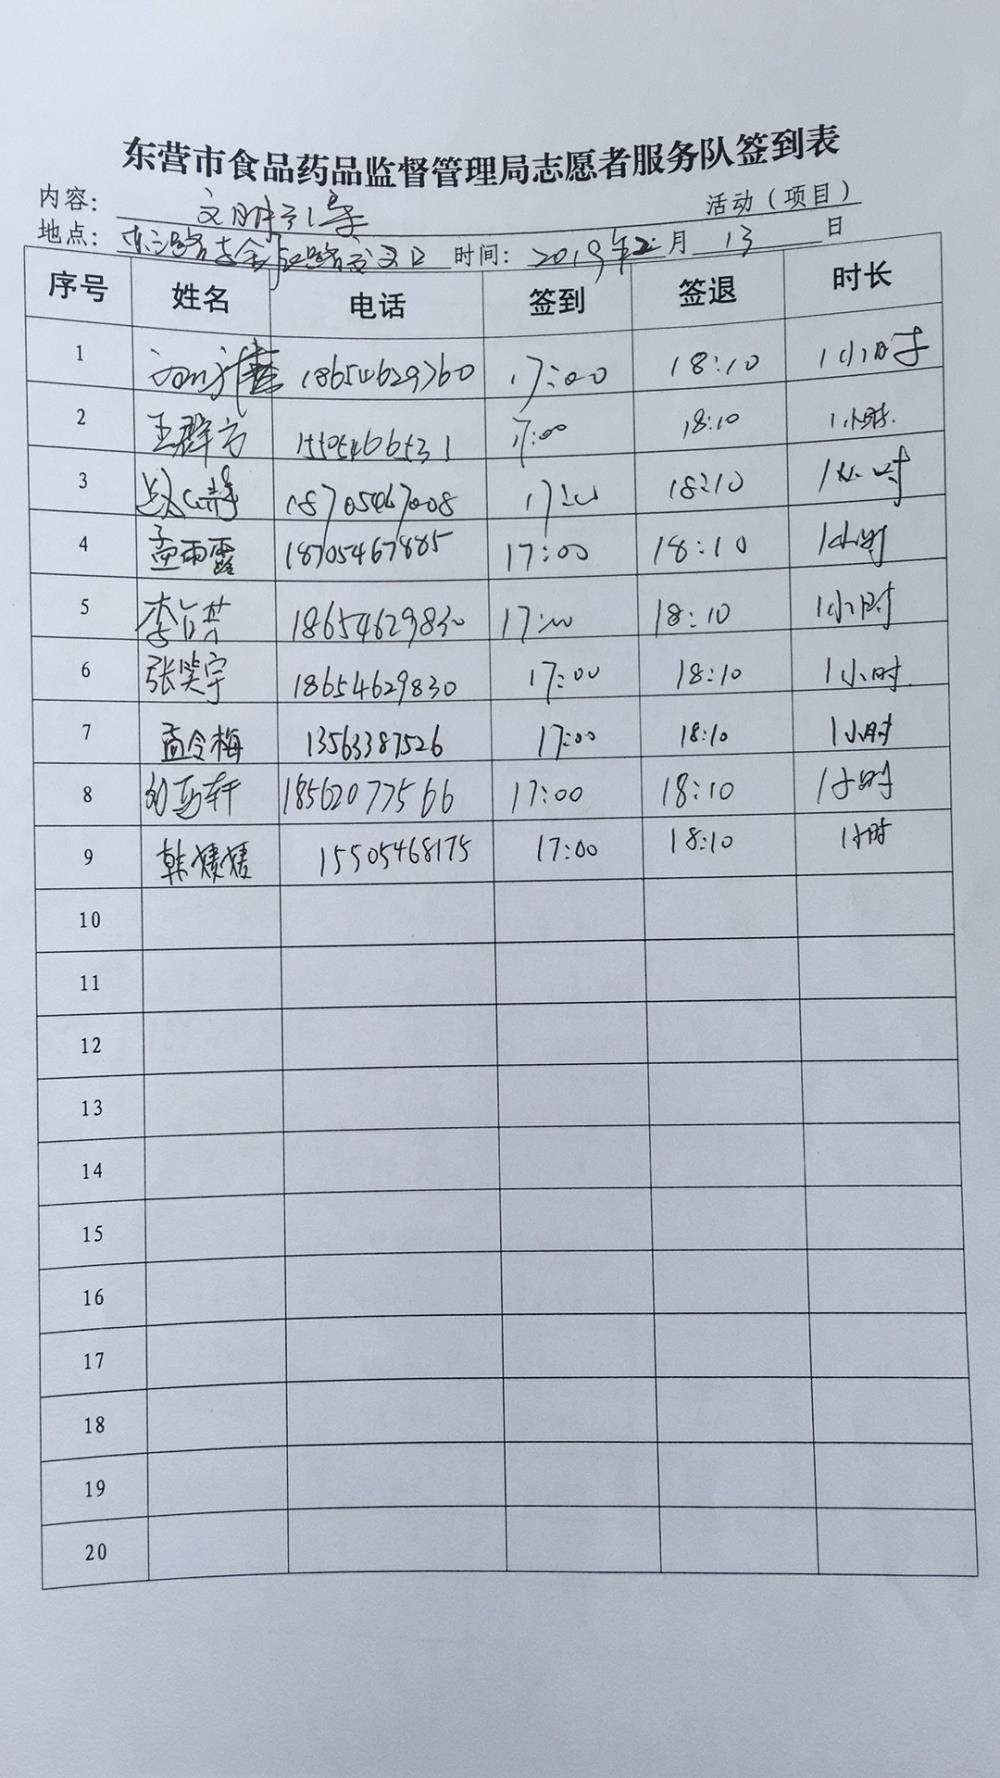 东营市食品药品监督管理局志愿者服务队签到表
内容： 文明引导 活动（项目）
地点： 东三路 交叉口 时间： 2019年2月13日
序号 姓名 电话 签到 签退 时长
1 18654629760 17:00 18:10 1小时
2 王群方 15505466531 17:00 18:10 1小时.
3 18705467008 17:00 18:10 1小时
4 孟雨露 18705467885 17:00 18:10 1小时
5 李 芳 18654629830 17:00 18:10 1小时
6 张笑宇 18654629830 17:00 18:10 1小时.
7 孟令梅 13563387526 17:00 18:10 1小时
8 轩 18562077566 17:00 18:10 1小时
9 韩媛媛 15505468175 17:00 18:10 1小时
10
11
12
13
14
15
16
17
18
19
20